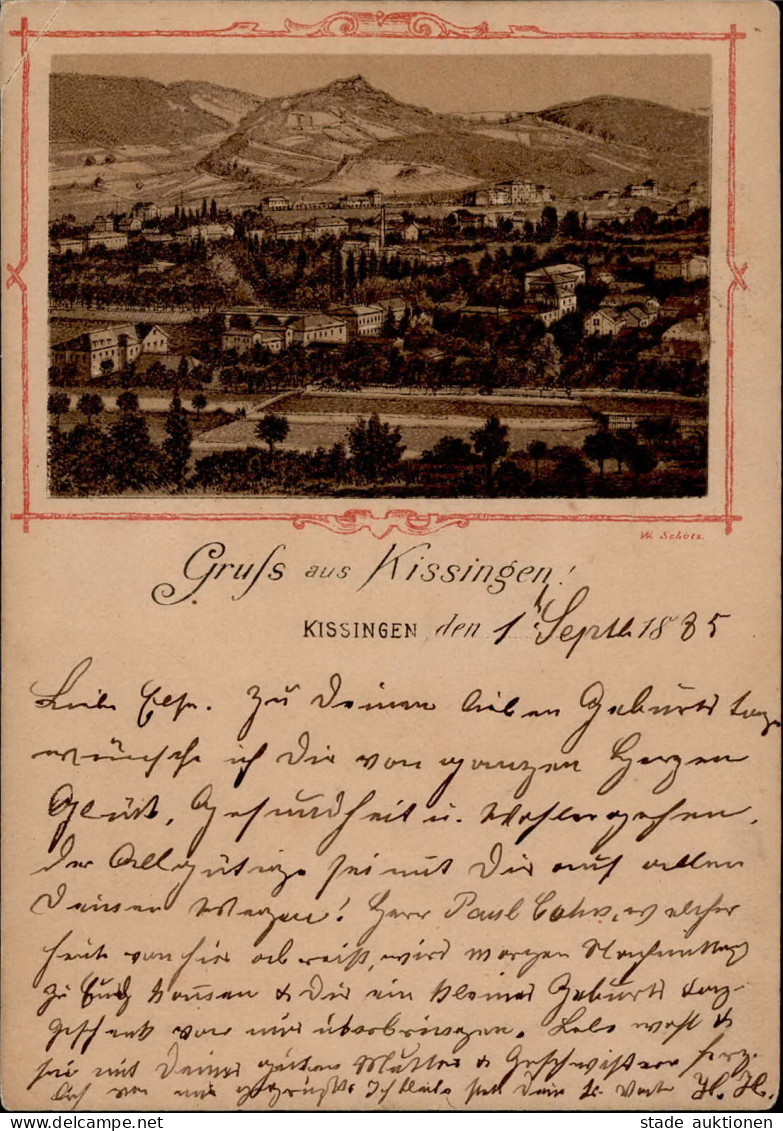 W. Schots.
Gruſs aus Kissingen!
KISSINGEN, den 1 Septb 1885
Liebe Else. Zu Deinem lieben Geburtstage
wünsche ich Dir von ganzem Herzen
Glück, Gesundheit u. Wohlergehen,
der Allgütige sei mit Dir auf allen
Deinen Wegen! Herr Paul Cohn, welcher
heute von hier abreist, wird morgen Nachmittag
zu Euch kommen & Dir ein kleines Geburtstag-
geschenk von mir überbringen. Lebe wohl &
sei mit Deiner guten Mutter & Geschwistern herz-
lich von mir gegrüßt. Ich bleibe stets Dein Vater H. H.
stade auktionen